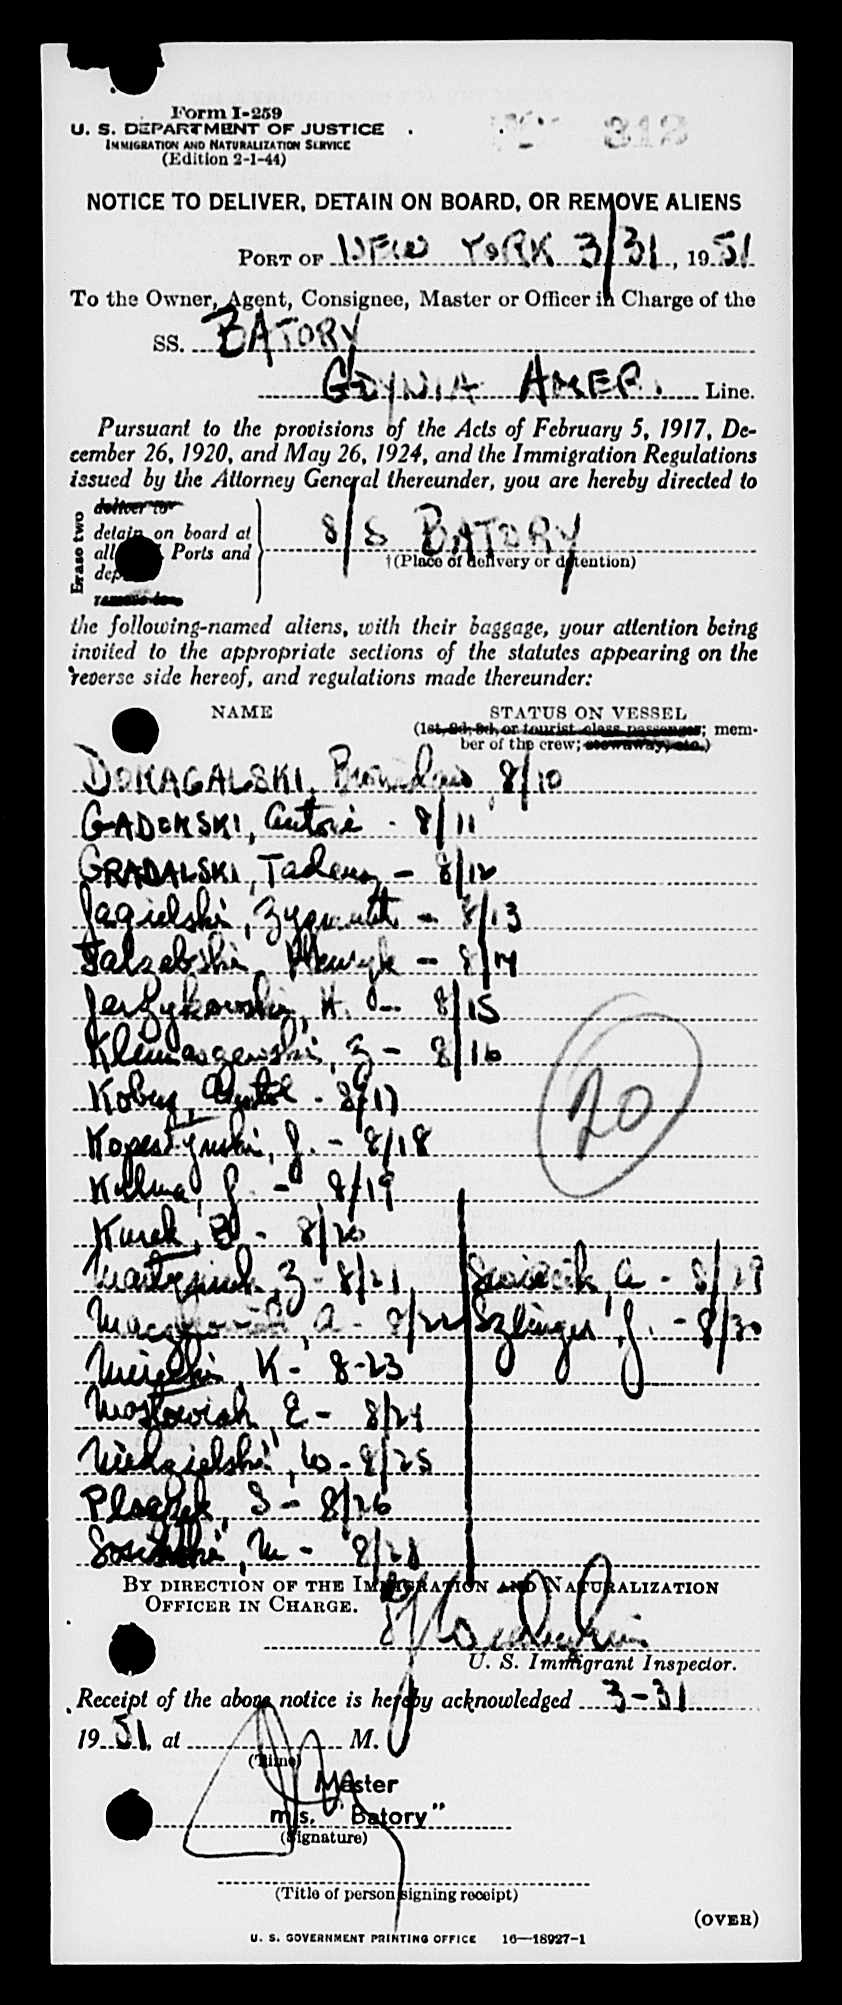 Form I-259
U. S. DEPARTMENT OF JUSTICE
IMMIGRATION AND NATURALIZATION SERVICE
(Edition 2-1-44)
312
NOTICE TO DELIVER, DETAIN ON BOARD, OR REMOVE ALIENS
PORT OF NEW YORK 3/31, 1951
To the Owner, Agent, Consignee, Master or Officer in Charge of the
SS. BATORY
GDYNIA AMER. Line.
Pursuant to the provisions of the Acts of February 5, 1917, De-
cember 26, 1920, and May 26, 1924, and the Immigration Regulations
issued by the Attorney General thereunder, you are hereby directed to
Erase two
deliver to
detain on board at
all Ports and
dep
remove to
S/S BATORY
†(Place of delivery or detention)
the following-named aliens, with their baggage, your attention being
invited to the appropriate sections of the statutes appearing on the
reverse side hereof, and regulations made thereunder:
NAME STATUS ON VESSEL
(1st, 2d, 3d, or tourist class passenger; mem-
ber of the crew; stowaway, etc.)
DOKAGALSKI, Bronislaw 8/10
GADOMSKI, Antoni - 8/11
GRADALSKI, Tadeusz - 8/12
Jagielski, Zygmunt - 8/13
Henryk - 8/14
Jerzykowski, H. - 8/15
Klimaszewski, Z - 8/16
8/17
Kopestynski, J. - 8/18
J. - 8/19
Kurek, B - 8/20
Z - 8/21
A - 8/22
K - 8-23
Mostowiak E - 8/24
Niedzielski, W - 8/25
S - 8/26
M - 8/28
A - 8/29
Szlinger, J. - 8/30
20
BY DIRECTION OF THE IMMIGRATION AND NATURALIZATION
OFFICER IN CHARGE.
U. S. Immigrant Inspector.
Receipt of the above notice is hereby acknowledged 3-31
1951, at M.
(Time)
Master
m/s. "Batory"
(Signature)
(Title of person signing receipt)
(OVER)
U. S. GOVERNMENT PRINTING OFFICE 16—18927-1